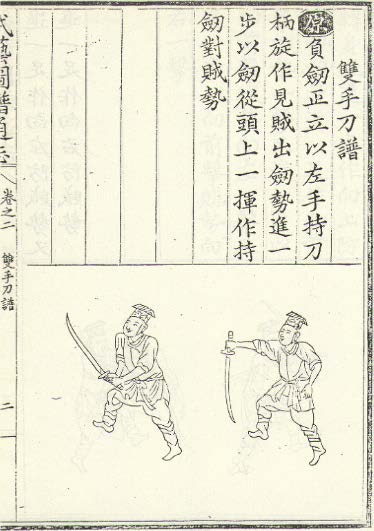 雙手刀譜
原負劒正立以左手持刀
柄旋作見賊出劒勢進一
步以劒從頭上一揮作持
劒對賊勢
武藝圖譜通志
卷之二
雙手刀譜
二